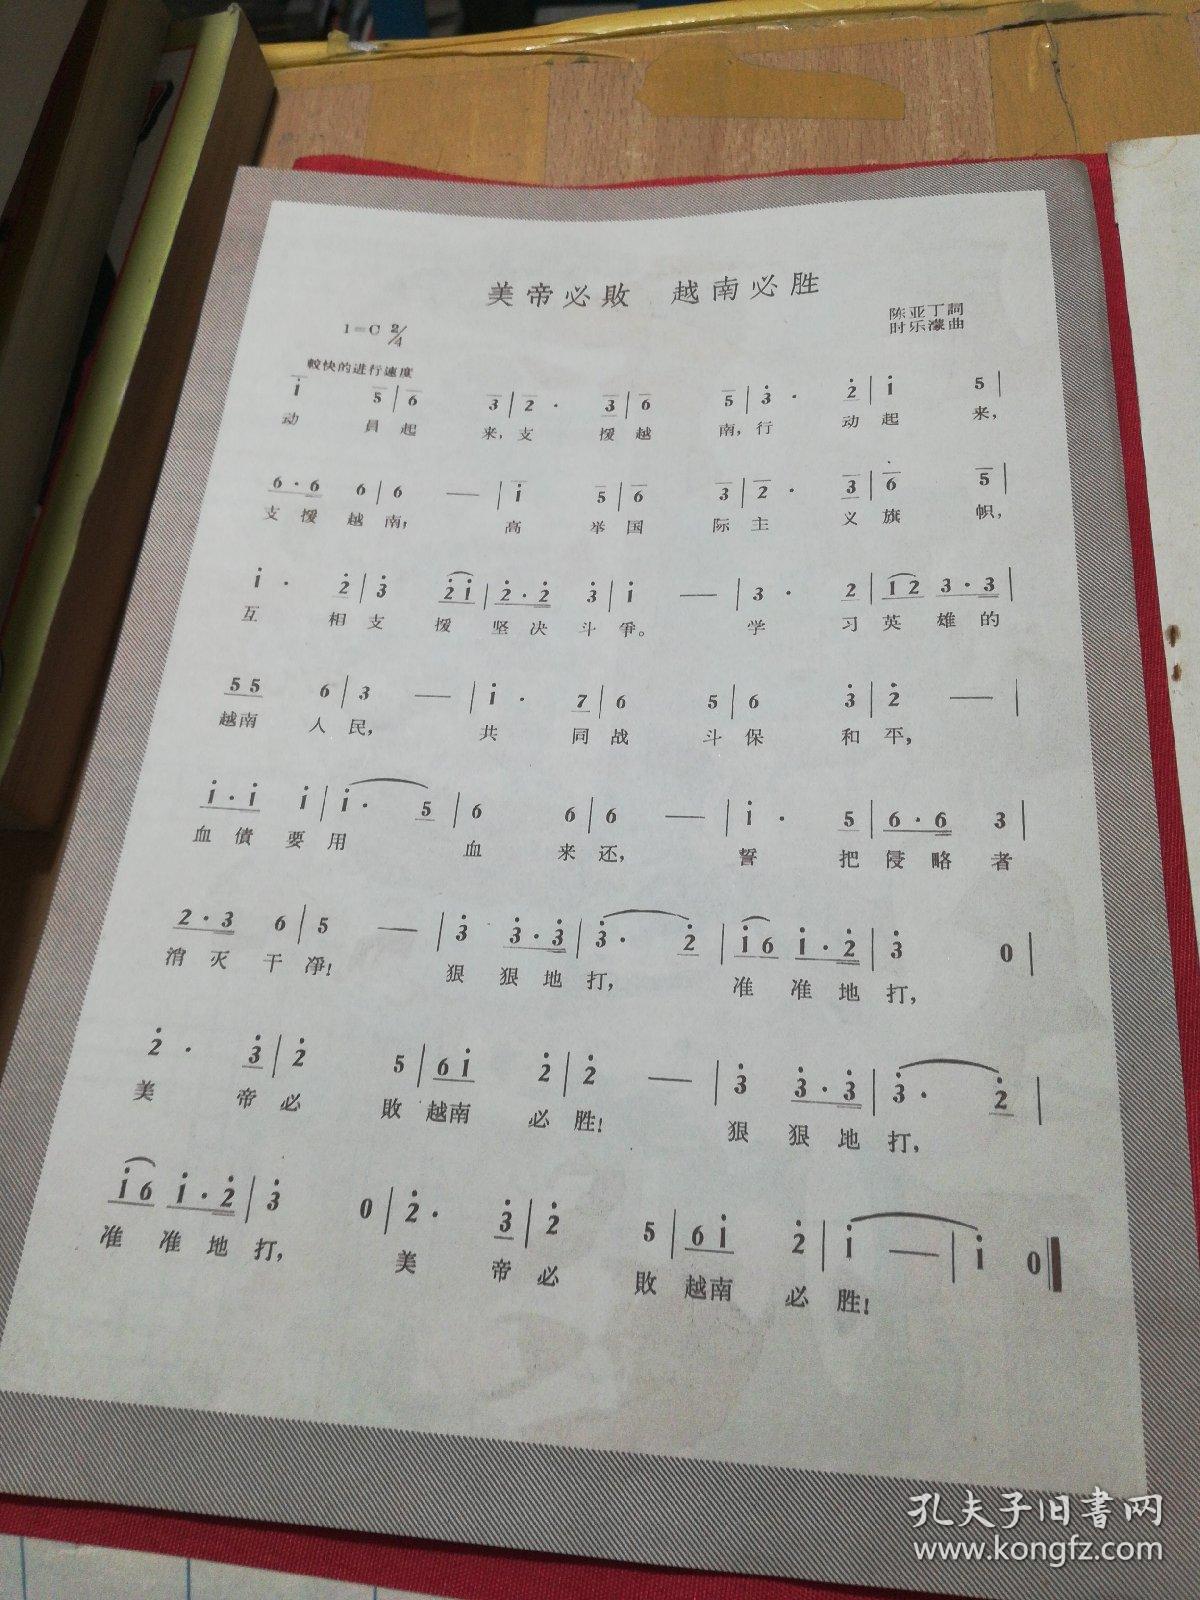 美帝必敗 越南必胜
陈亚丁詞
时乐濛曲
1=C 2/4
較快的进行速度
i 5 | 6 3 | 2 · 3 | 6 5 | 3 · 2 | i 5 |
动 員 起 来, 支 援 越 南, 行 动 起 来,
6 · 6 6 | 6 — | i 5 | 6 3 | 2 · 3 | 6 5 |
支 援 越 南, 高 举 国 际 主 义 旗 帜,
i · 2 | 3 2 i | 2 · 2 3 | i — | 3 · 2 | 1 2 3 · 3 |
互 相 支 援 坚 决 斗 爭。 学 习 英 雄 的
5 5 6 | 3 — | i · 7 | 6 5 | 6 3 | 2 — |
越南 人 民, 共 同 战 斗 保 和 平,
i · i i | i · 5 | 6 6 | 6 — | i · 5 | 6 · 6 3 |
血 債 要 用 血 来 还, 誓 把 侵 略 者
2 · 3 6 | 5 — | 3 3 · 3 | 3 · 2 | i 6 i · 2 | 3 0 |
消 灭 干 净! 狠 狠 地 打, 准 准 地 打,
2 · 3 | 2 5 | 6 i 2 | 2 — | 3 3 · 3 | 3 · 2 |
美 帝 必 敗 越南 必 胜! 狠 狠 地 打,
i 6 i · 2 | 3 0 | 2 · 3 | 2 5 | 6 i 2 | i — | i 0 ‖
准 准 地 打, 美 帝 必 敗 越南 必 胜!
孔夫子旧書网
www.kongfz.com